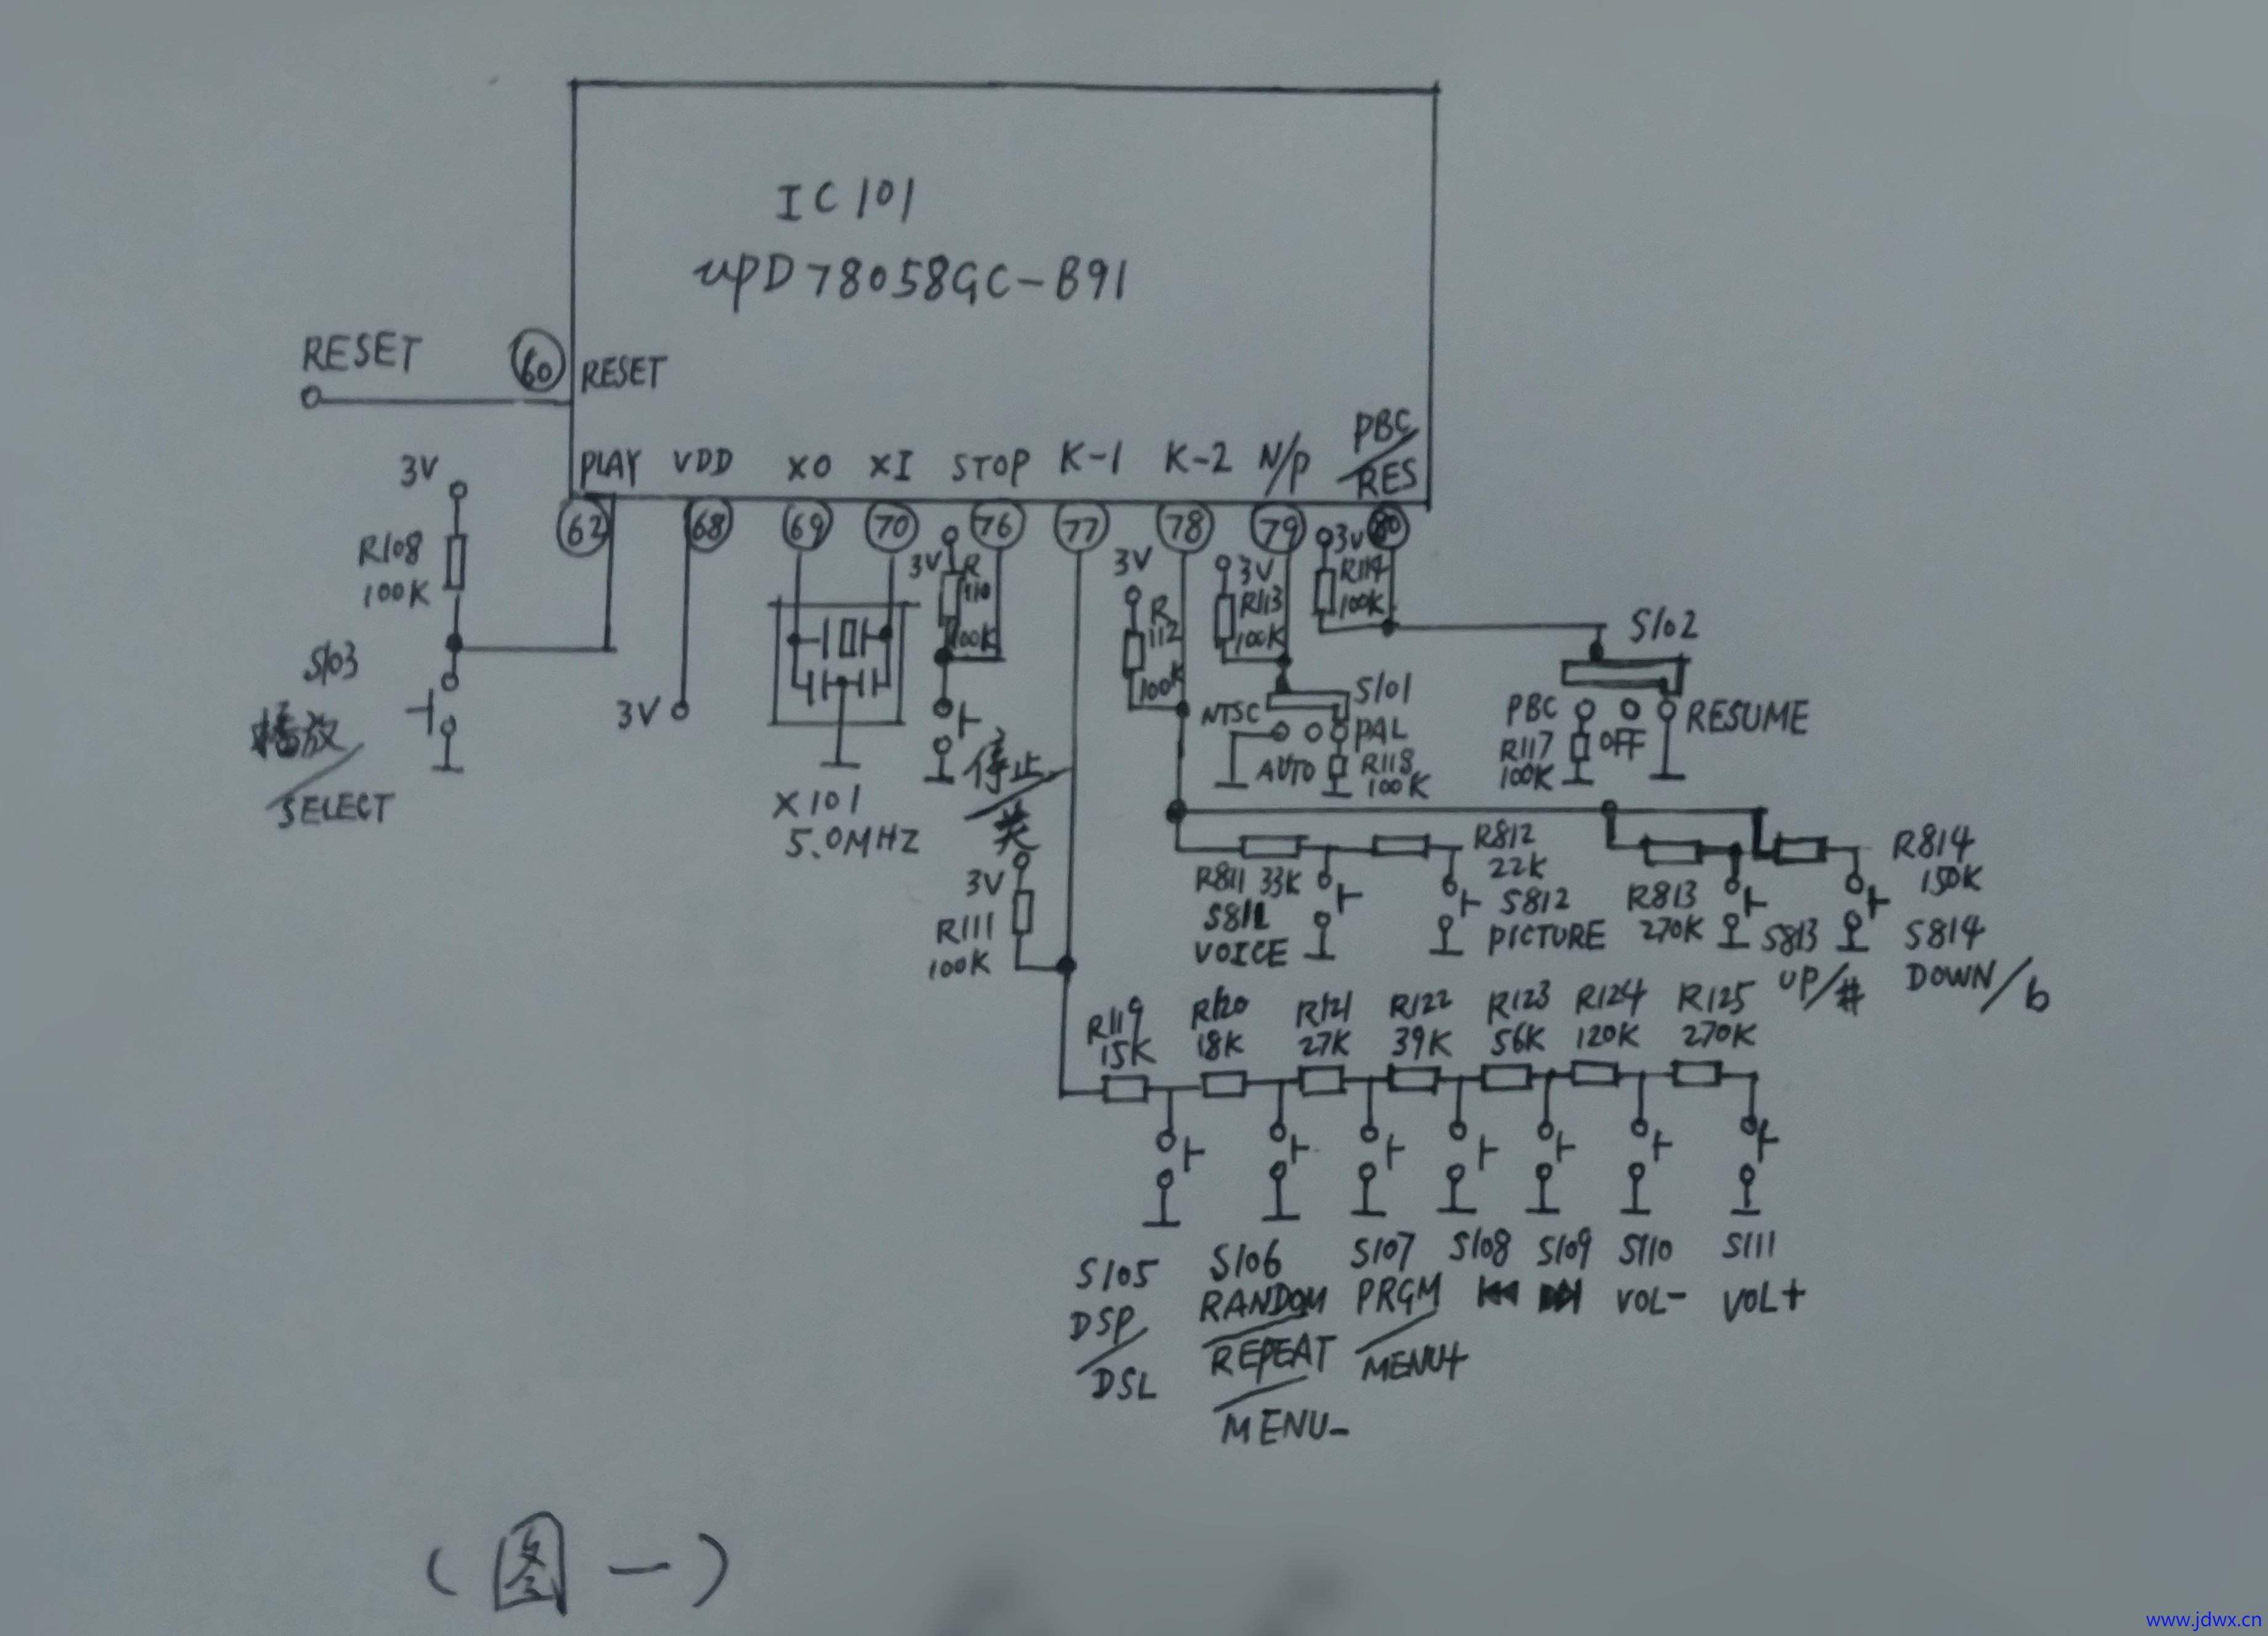 IC101
upD78058GC-B91
RESET
60
RESET
PLAY VDD XO XI STOP K-1 K-2 N/P PBC/RES
62 68 69 70 76 77 78 79 80
3V
R108
100K
S103
播放/SELECT
3V
X101
5.0MHZ
3V
R110
100K
停止/关
3V
R111
100K
3V
R112
100K
3V
R113
100K
S101
NTSC
AUTO
PAL
R118
100K
3V
R114
100K
S102
PBC
OFF
RESUME
R117
100K
R811 33K
S811
VOICE
R812
22K
S812
PICTURE
R813
270K
S813
UP/#
R814
150K
S814
DOWN/b
R119 R120 R121 R122 R123 R124 R125
15K 18K 27K 39K 56K 120K 270K
S105
DSP/DSL
S106
RANDOM/REPEAT/MENU-
S107
PRGM/MENU+
S108
⏮
S109
⏭
S110
VOL-
S111
VOL+
(图一)
www.jdwx.cn